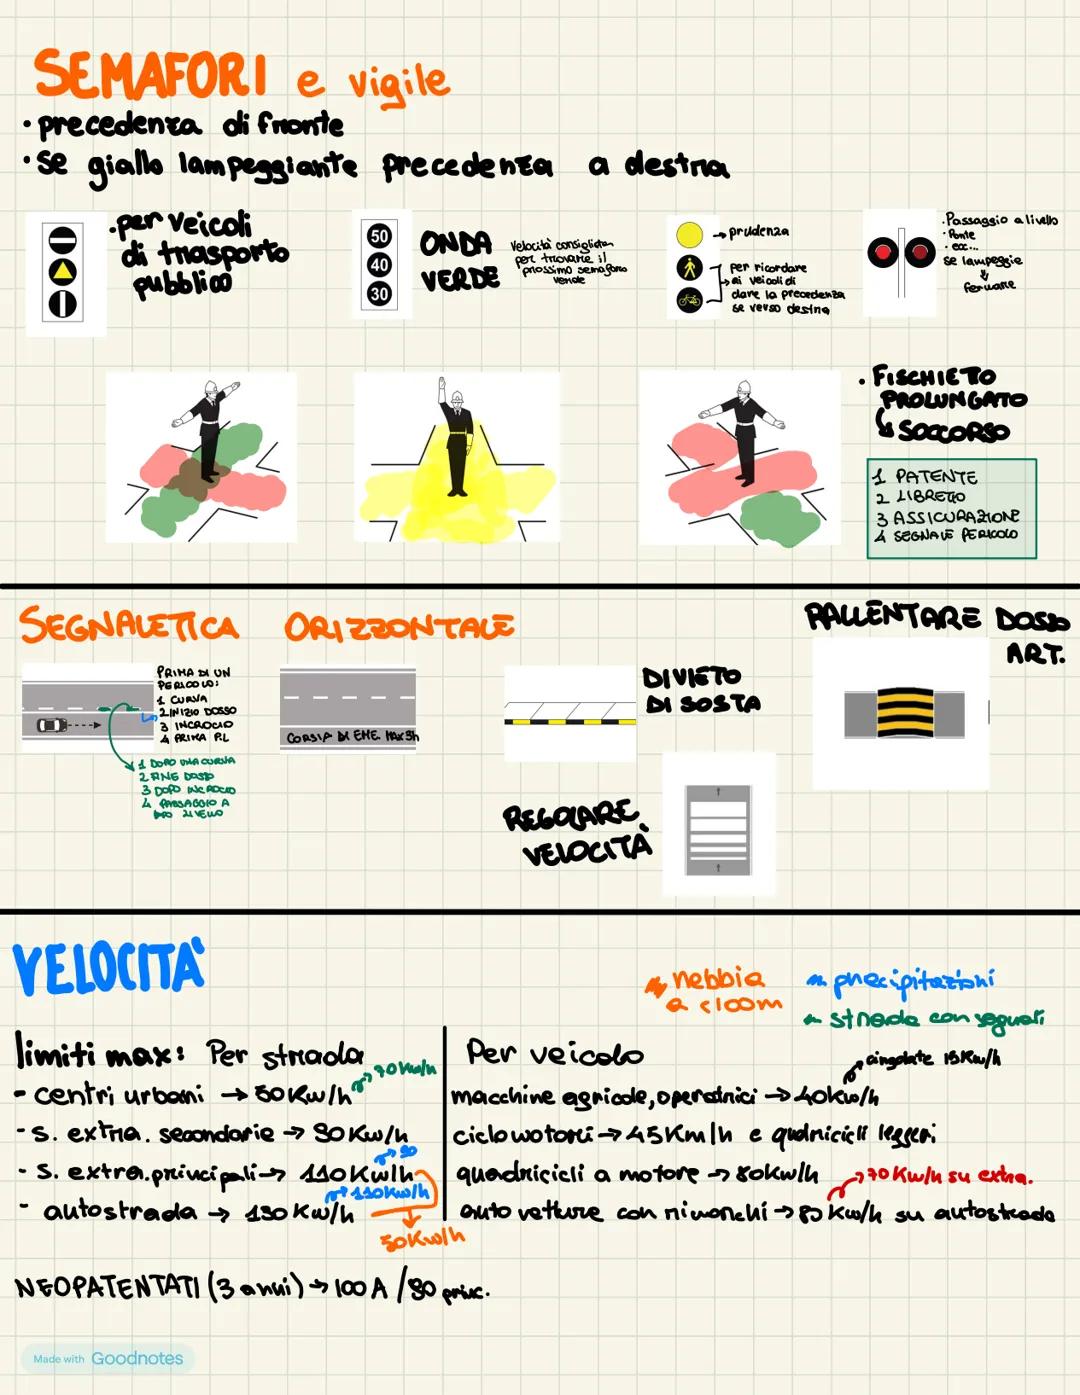 SEMAFORI e vigile
• precedenza di fronte
• se giallo lampeggiante precedenza a destra
• per veicoli
di trasporto
pubblico
50
40
30
ONDA
VERDE
Velocità consigliata
per trovare il
prossimo semaforo
verde
→ prudenza
per ricordare
→ ai veicoli di
dare la precedenza
se verso destra
• Passaggio a livello
• Ponte
• ecc...
se lampeggia
↓
fermare
• FISCHIETTO
PROLUNGATO
↳ SOCCORSO
1 PATENTE
2 LIBRETTO
3 ASSICURAZIONE
4 SEGNALE PERICOLO
SEGNALETICA ORIZZONTALE
PRIMA DI UN
PERICOLO:
1 CURVA
2 INIZIO DOSSO
3 INCROCIO
4 PRIMA P.L
1 DOPO UNA CURVA
2 FINE DOSSO
3 DOPO INCROCIO
4 PASSAGGIO A
LIVELLO
CORSIA DI EME. MAX 3h
DIVIETO
DI SOSTA
REGOLARE
VELOCITÀ
RALLENTARE DOSSO
ART.
VELOCITA'
nebbia
a <100m
precipitazioni
strada con segnali
limiti max: Per strada
- centri urbani → 50 Km/h
70 Km/h
- s. extra. secondarie → 90 Km/h
- s. extra. principali → 110 Km/h
90
- autostrada → 130 Km/h
110 Km/h
50 Km/h
NEOPATENTATI (3 anni) → 100 A / 90 princ.
Per veicolo
cingolate 15 Km/h
macchine agricole, operatrici → 40 Km/h
ciclomotori → 45 Km/h e quadricicli leggeri
quadricicli a motore → 80 Km/h
→ 70 Km/h su extra.
auto vetture con rimorchi → 80 Km/h su autostrada
Made with Goodnotes